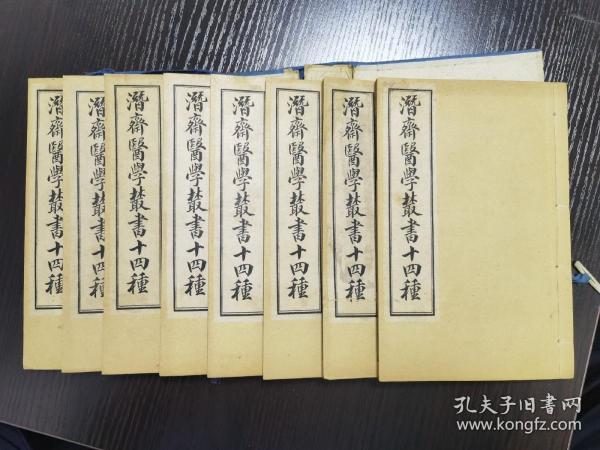 潛齋醫學叢書十四種
潛齋醫學叢書十四種
潛齋醫學叢書十四種
潛齋醫學叢書十四種
潛齋醫學叢書十四種
潛齋醫學叢書十四種
潛齋醫學叢書十四種
潛齋醫學叢書十四種
孔夫子旧书网
www.kongfz.com